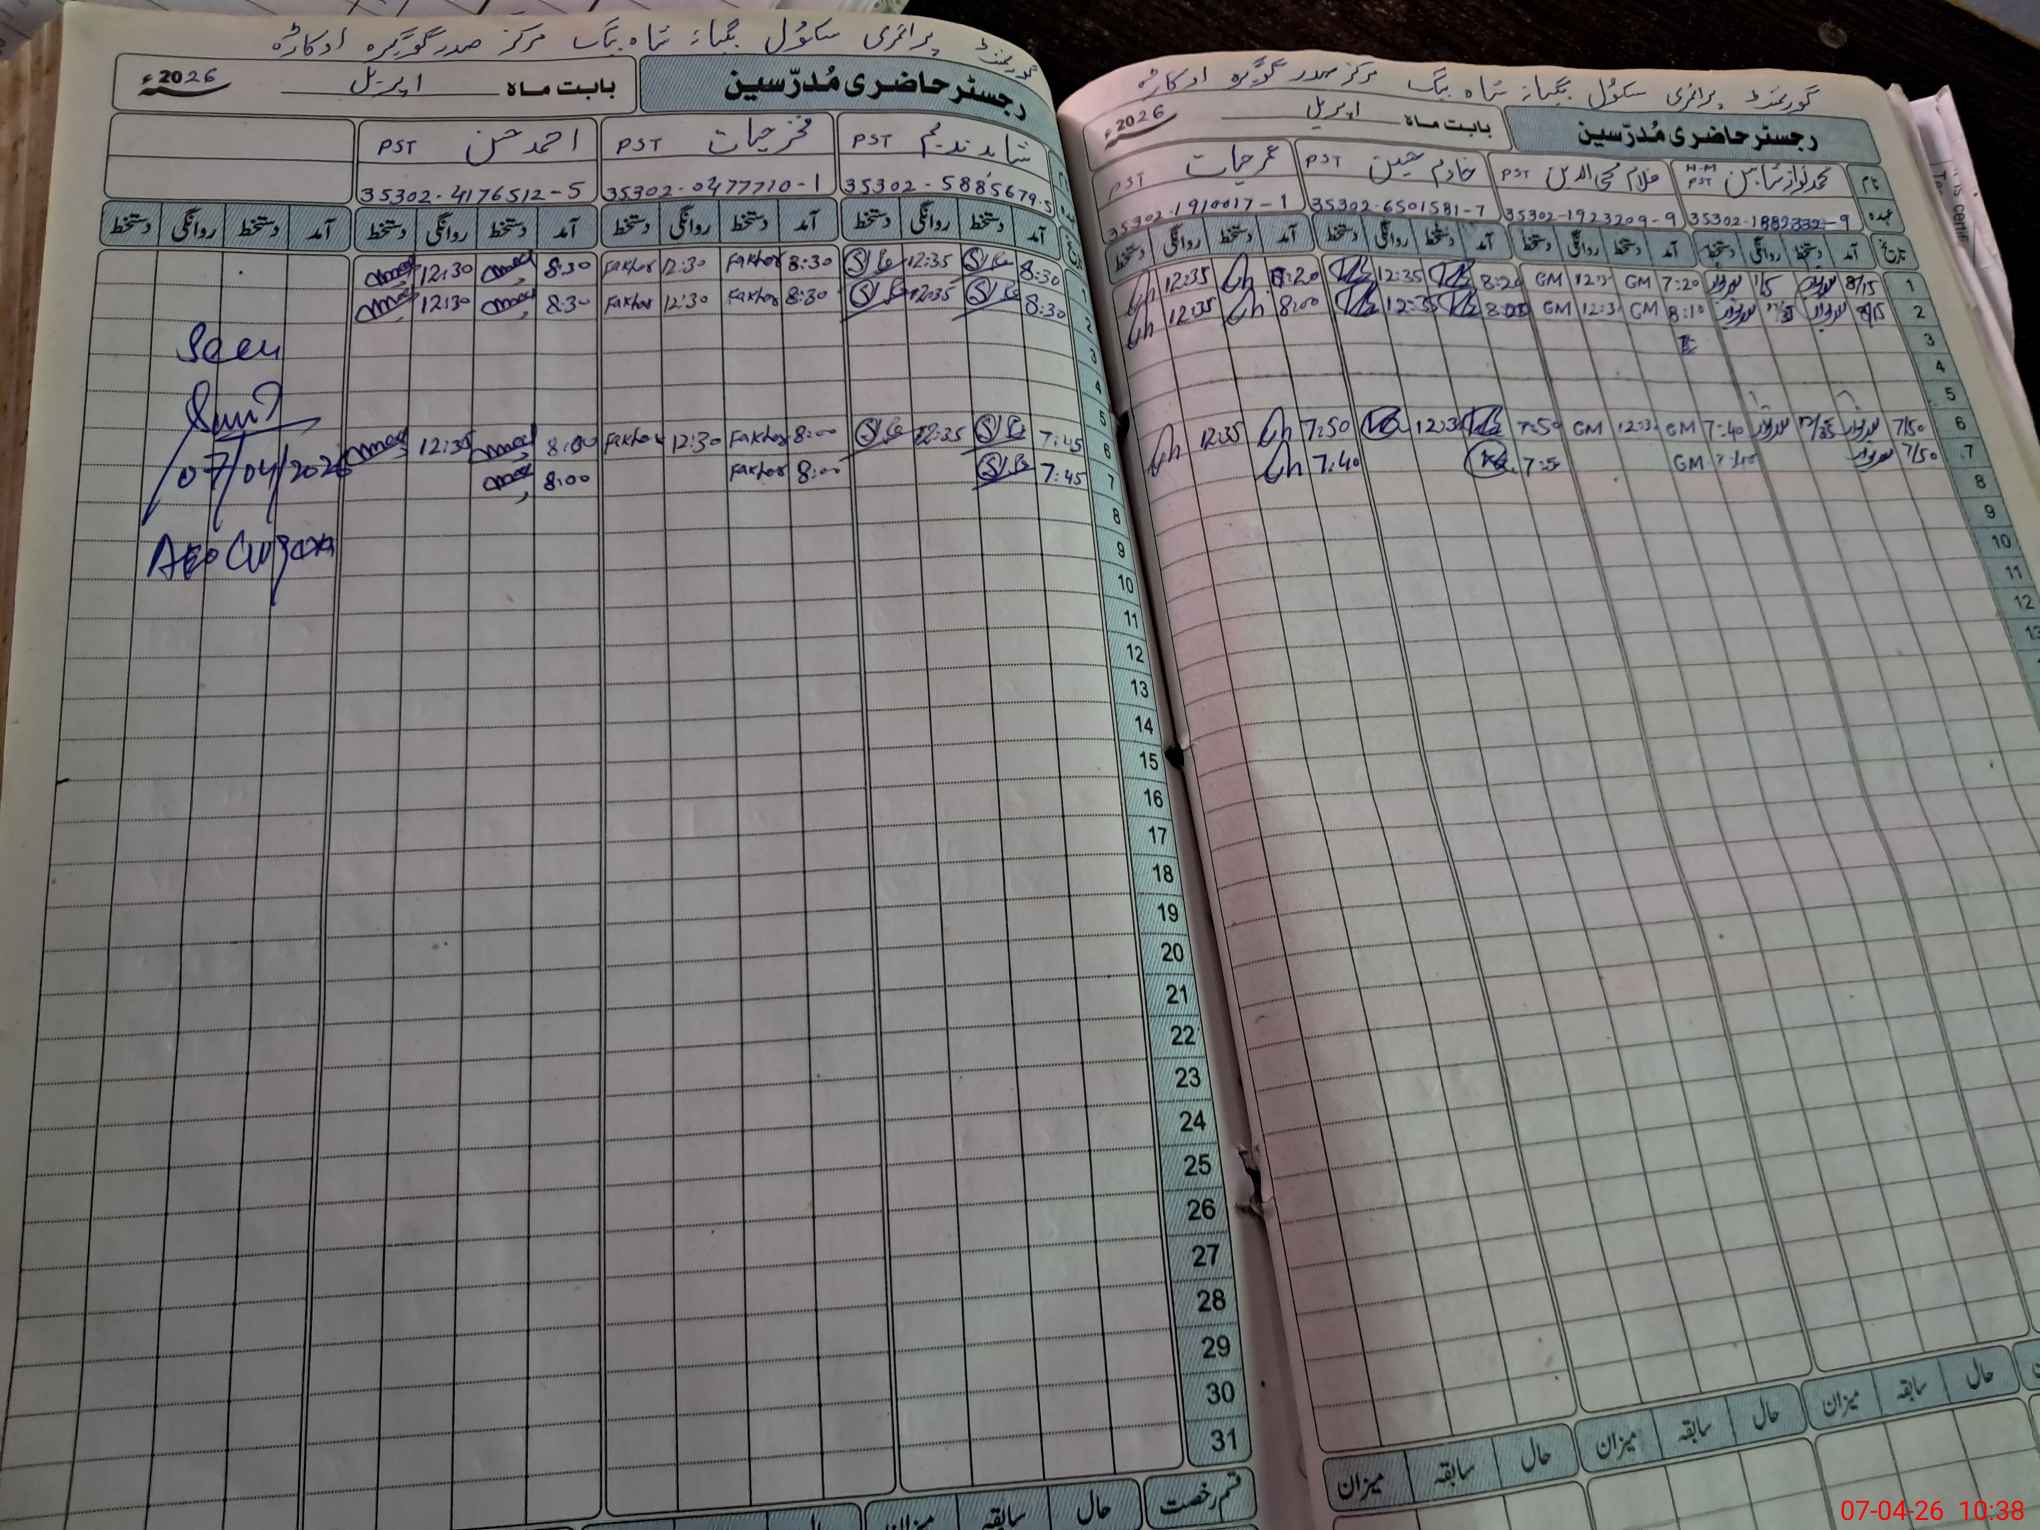 گورنمنٹ پرائمری سکول جگیانہ شاہ بیگ مرکز صدر گوگیرہ اوکاڑہ
رجسٹر حاضری مُدرّسین بابت ماہ اپریل 2026ء
نام محمد نواز شاہین H.M PST غلام محی الدین PST خادم حسین PST عمر حیات PST
عہدہ 35302-1882332-9 35302-1923209-9 35302-6501581-7 35302-1910017-1
تاریخ آمد دستخط روانگی دستخط آمد دستخط روانگی دستخط آمد دستخط روانگی دستخط آمد دستخط روانگی دستخط
1 8/15 1/5 7:20 GM GM 8:20 12:35 8:20 12:35
2 8/15 8:10 GM GM 8:00 12:35 8:00 12:35
3
4
5
6 7/50 12/35 7:40 GM GM 7:50 7:50 12:35
7 7/50 GM 7:40
8
9
10
11
12
13
حال سابقہ میزان حال سابقہ میزان
گورنمنٹ پرائمری سکول جگیانہ شاہ بیگ مرکز صدر گوگیرہ اوکاڑہ
رجسٹر حاضری مُدرّسین بابت ماہ اپریل 2026ء
شاہد ندیم PST فخر حیات PST احمد حسن PST
35302-5885679-5 35302-0477710-1 35302-4176512-5
آمد دستخط روانگی دستخط آمد دستخط روانگی دستخط آمد دستخط روانگی دستخط آمد دستخط روانگی دستخط
1 8:30 12:35 8:30 Fakhar 12:30 Fakhar 8:30 12:30
2 8:30 12:35 8:30 Fakhar 12:30 Fakhar 8:30 12:30
3 Seen
4
5
6 7:45 12:35 8:00 Fakhar 12:30 Fakhar 8:00 12:35
7 7:45 8:00 Fakhar 8:00 07/04/2026
8
9
10
11
12
13
14
15
16
17
18
19
20
21
22
23
24
25
26
27
28
29
30
31
قسم رخصت حال سابقہ میزان حال
07-04-26 10:38